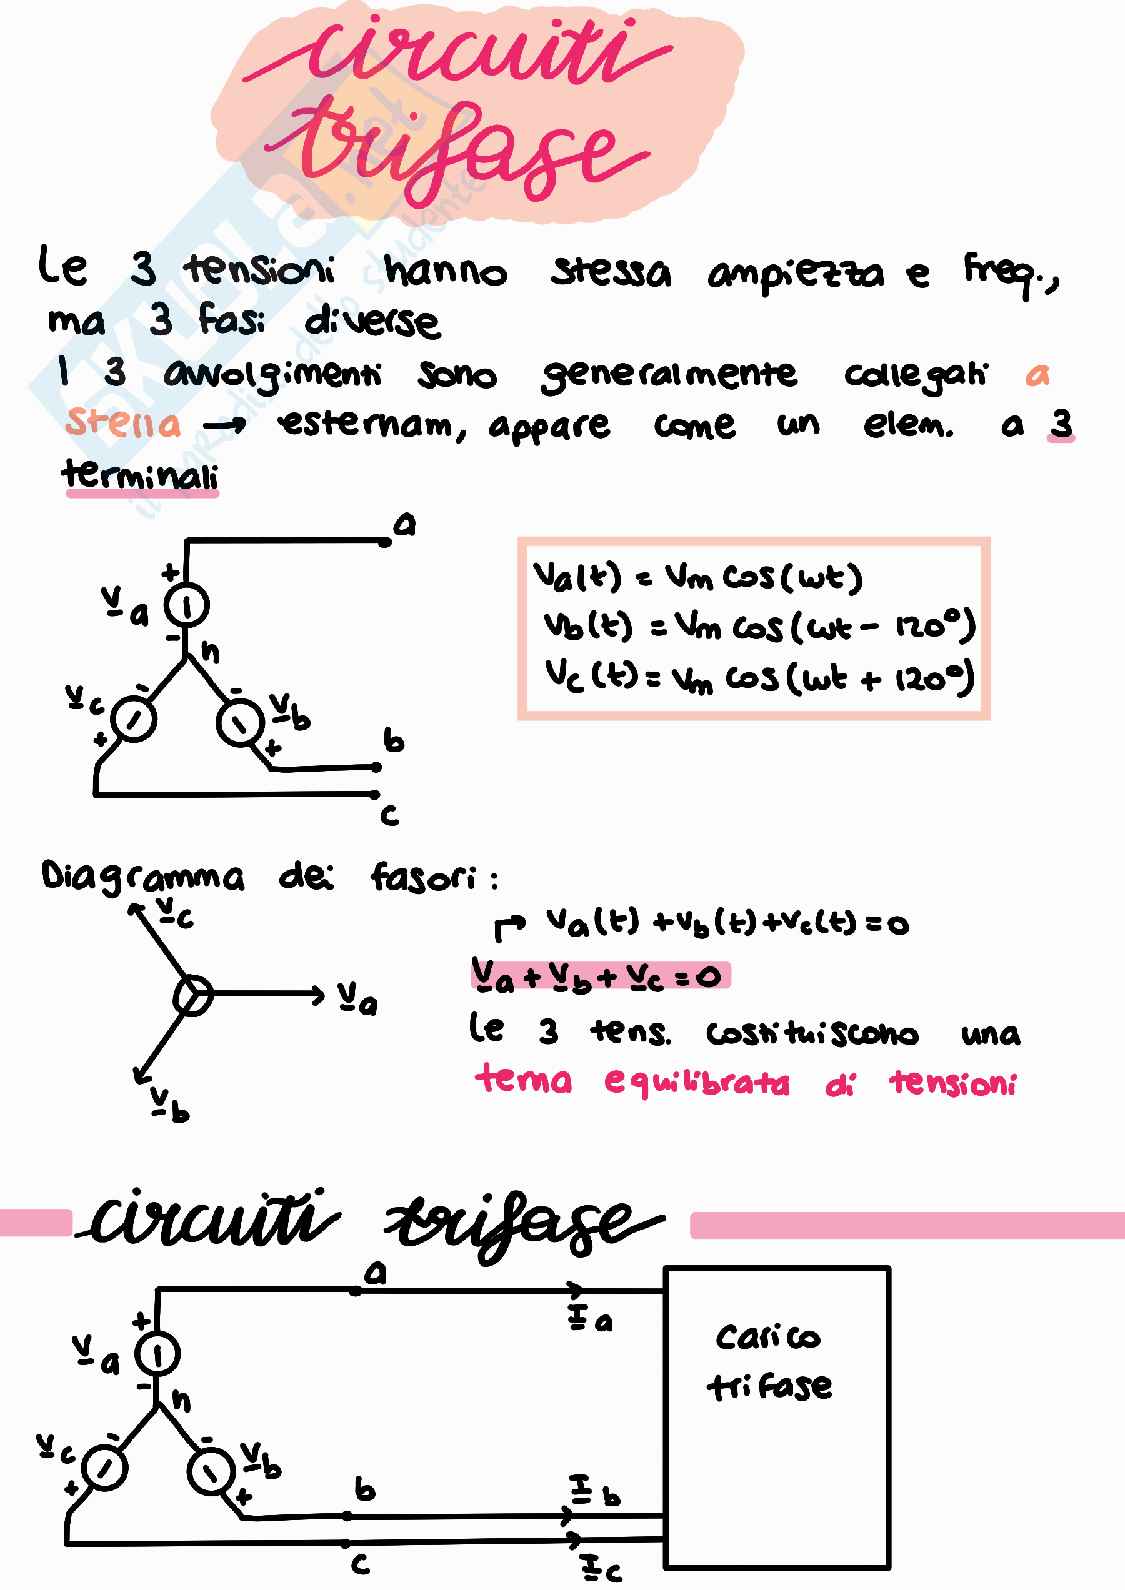 circuiti
trifase
SKUOLA.net
il paradiso dello studente
Le 3 tensioni hanno stessa ampiezza e freq.,
ma 3 fasi diverse
I 3 avvolgimenti sono generalmente collegati a
stella → esternam, appare come un elem. a 3
terminali
a
+
V a
-
n
- -
V c V b
+ +
b
c
Va(t) = Vm cos(ωt)
Vb(t) = Vm cos(ωt - 120°)
Vc(t) = Vm cos(ωt + 120°)
Diagramma dei fasori:
Vc
Va
Vb
Va(t) + Vb(t) + Vc(t) = 0
Va + Vb + Vc = 0
Le 3 tens. costituiscono una
terna equilibrata di tensioni
circuiti trifase
a
Ia
+
V a
-
n
- -
V c V b
+ +
b
Ib
c
Ic
Carico
trifase